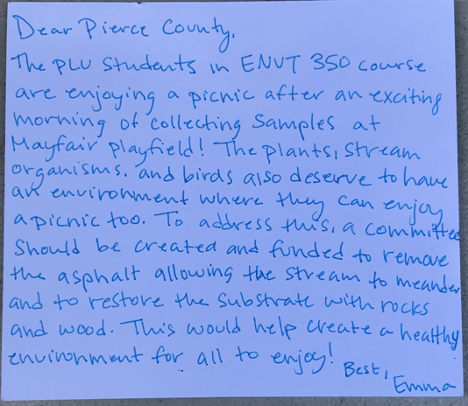 Dear Pierce County,
The PLU Students in ENVT 350 course
are enjoying a picnic after an exciting
morning of collecting samples at
Mayfair playfield! The plants, stream
organisms, and birds also deserve to have
an environment where they can enjoy
a picnic too. To address this, a committee
should be created and funded to remove
the asphalt allowing the stream to meander
and to restore the substrate with rocks
and wood. This would help create a healthy
environment for all to enjoy!
Best,
Emma